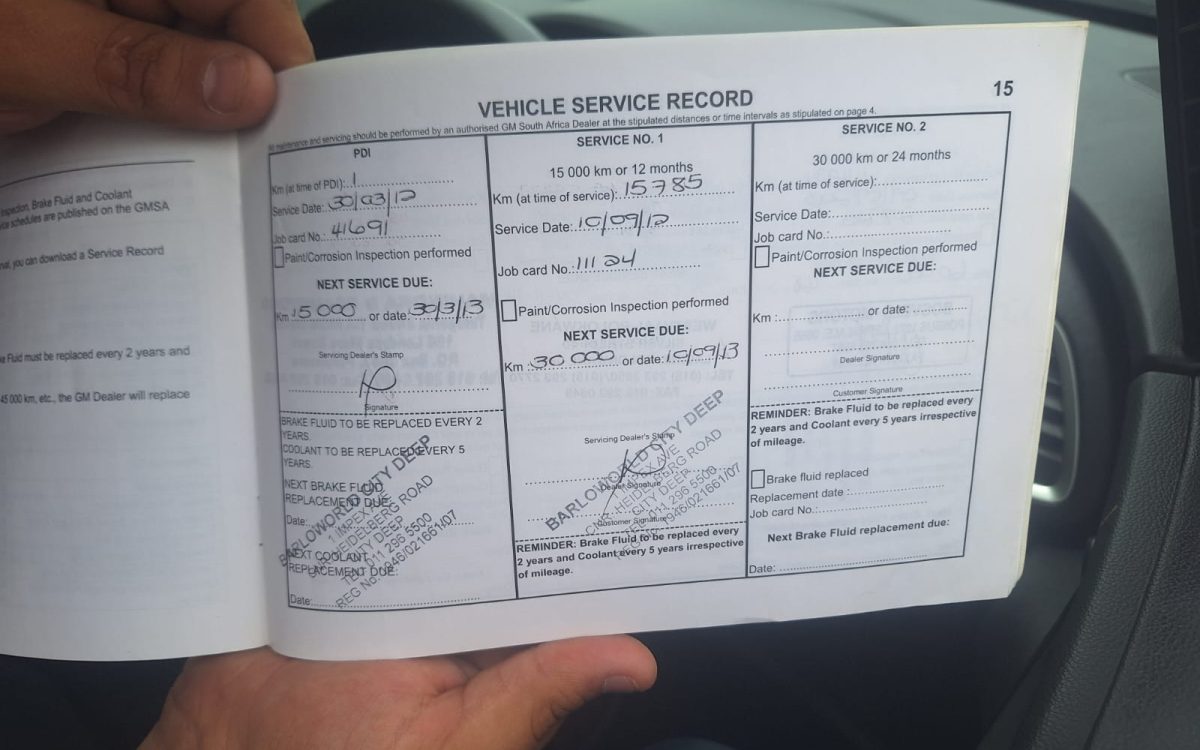 Inspection, Brake Fluid and Coolant
schedules are published on the GMSA
you can download a Service Record
Fluid must be replaced every 2 years and
45 000 km, etc., the GM Dealer will replace
15
VEHICLE SERVICE RECORD
All maintenance and servicing should be performed by an authorised GM South Africa Dealer at the stipulated distances or time intervals as stipulated on page 4.
PDI
Km (at time of PDI): 1
Service Date: 30/03/12
Job card No.: 41691
Paint/Corrosion Inspection performed
NEXT SERVICE DUE:
Km 15 000 or date: 30/3/13
Servicing Dealer's Stamp
Signature
BRAKE FLUID TO BE REPLACED EVERY 2
YEARS.
COOLANT TO BE REPLACED EVERY 5
YEARS.
NEXT BRAKE FLUID
REPLACEMENT DUE:
Date:
NEXT COOLANT
REPLACEMENT DUE:
Date:
BARLOWORLD CITY DEEP
HEIDELBERG ROAD
CITY DEEP
TEL: 011 296 5500
REG No. 1946/021661/07
SERVICE NO. 1
15 000 km or 12 months
Km (at time of service): 15785
Service Date: 10/09/12
Job card No.: 111 24
Paint/Corrosion Inspection performed
NEXT SERVICE DUE:
Km : 30 000 or date: 10/09/13
Servicing Dealer's Stamp
Dealer Signature
Customer Signature
BARLOWORLD CITY DEEP
HEIDELBERG ROAD
CITY DEEP
TEL: 011 296 5500
REG No. 1946/021661/07
REMINDER: Brake Fluid to be replaced every
2 years and Coolant every 5 years irrespective
of mileage.
SERVICE NO. 2
30 000 km or 24 months
Km (at time of service):
Service Date:
Job card No.:
Paint/Corrosion Inspection performed
NEXT SERVICE DUE:
Km : or date:
Dealer Signature
Customer Signature
REMINDER: Brake Fluid to be replaced every
2 years and Coolant every 5 years irrespective
of mileage.
Brake fluid replaced
Replacement date :
Job card No.:
Next Brake Fluid replacement due:
Date: